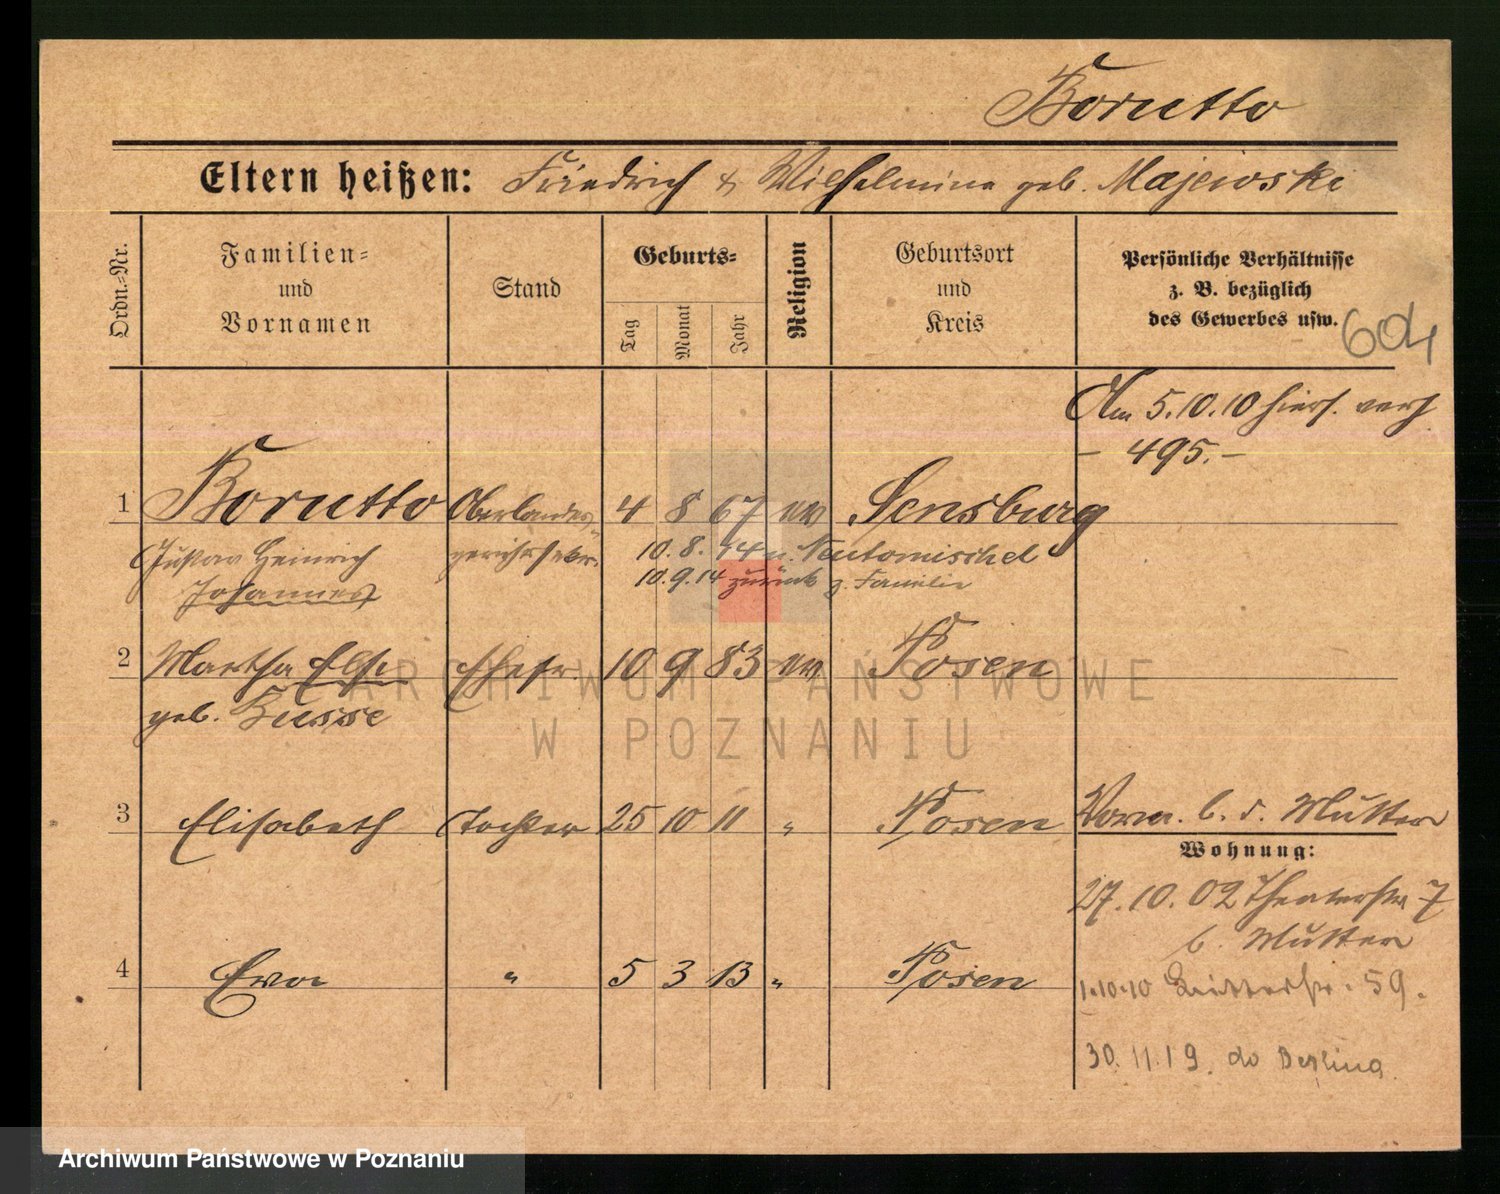 Borutto
Eltern heißen: Friedrich & Wilhelmina geb. Majewski
Ordn.=Nr.
Familien=
und
Vornamen
Stand
Geburts=
Tag
Monat
Jahr
Religion
Geburtsort
und
Kreis
Persönliche Verhältnisse
z. B. bezüglich
des Gewerbes usw.
604
Am 5.10.10 hiers. verh
– 495. –
1 Borutto Oberlandes 4 8 67 ev Sensburg
Gustav Heinrich gerichtssekr. 10. 8. 14 n. Neutomischel
Johannes 10. 9. 14 zurück z. Familie
2 Martha Else Ehefr. 10 9 83 ev. Posen
geb. Busse
3 Elisabeth Tochter 25 10 11 " Posen
Vorm. b. d. Mutter
Wohnung:
27. 10. 02 Theaterstr 7
b. Mutter
4 Eva " 5 3 13 " Posen
1.10.10 59.
30. 11. 19. do Berlina
ARCHIWUM PAŃSTWOWE
W POZNANIU
Archiwum Państwowe w Poznaniu